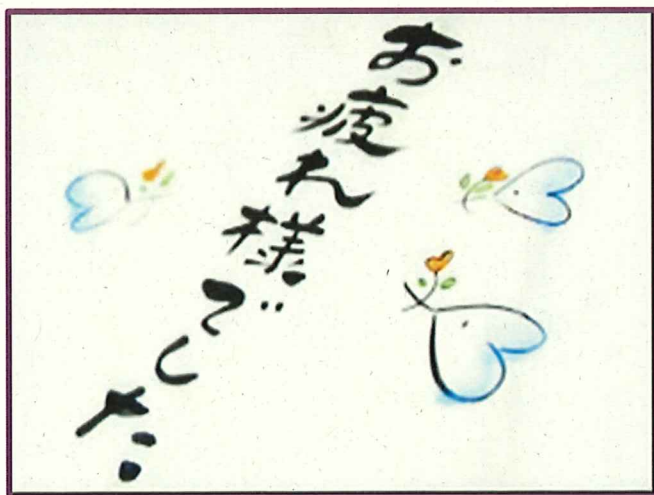 お疲れ様でした